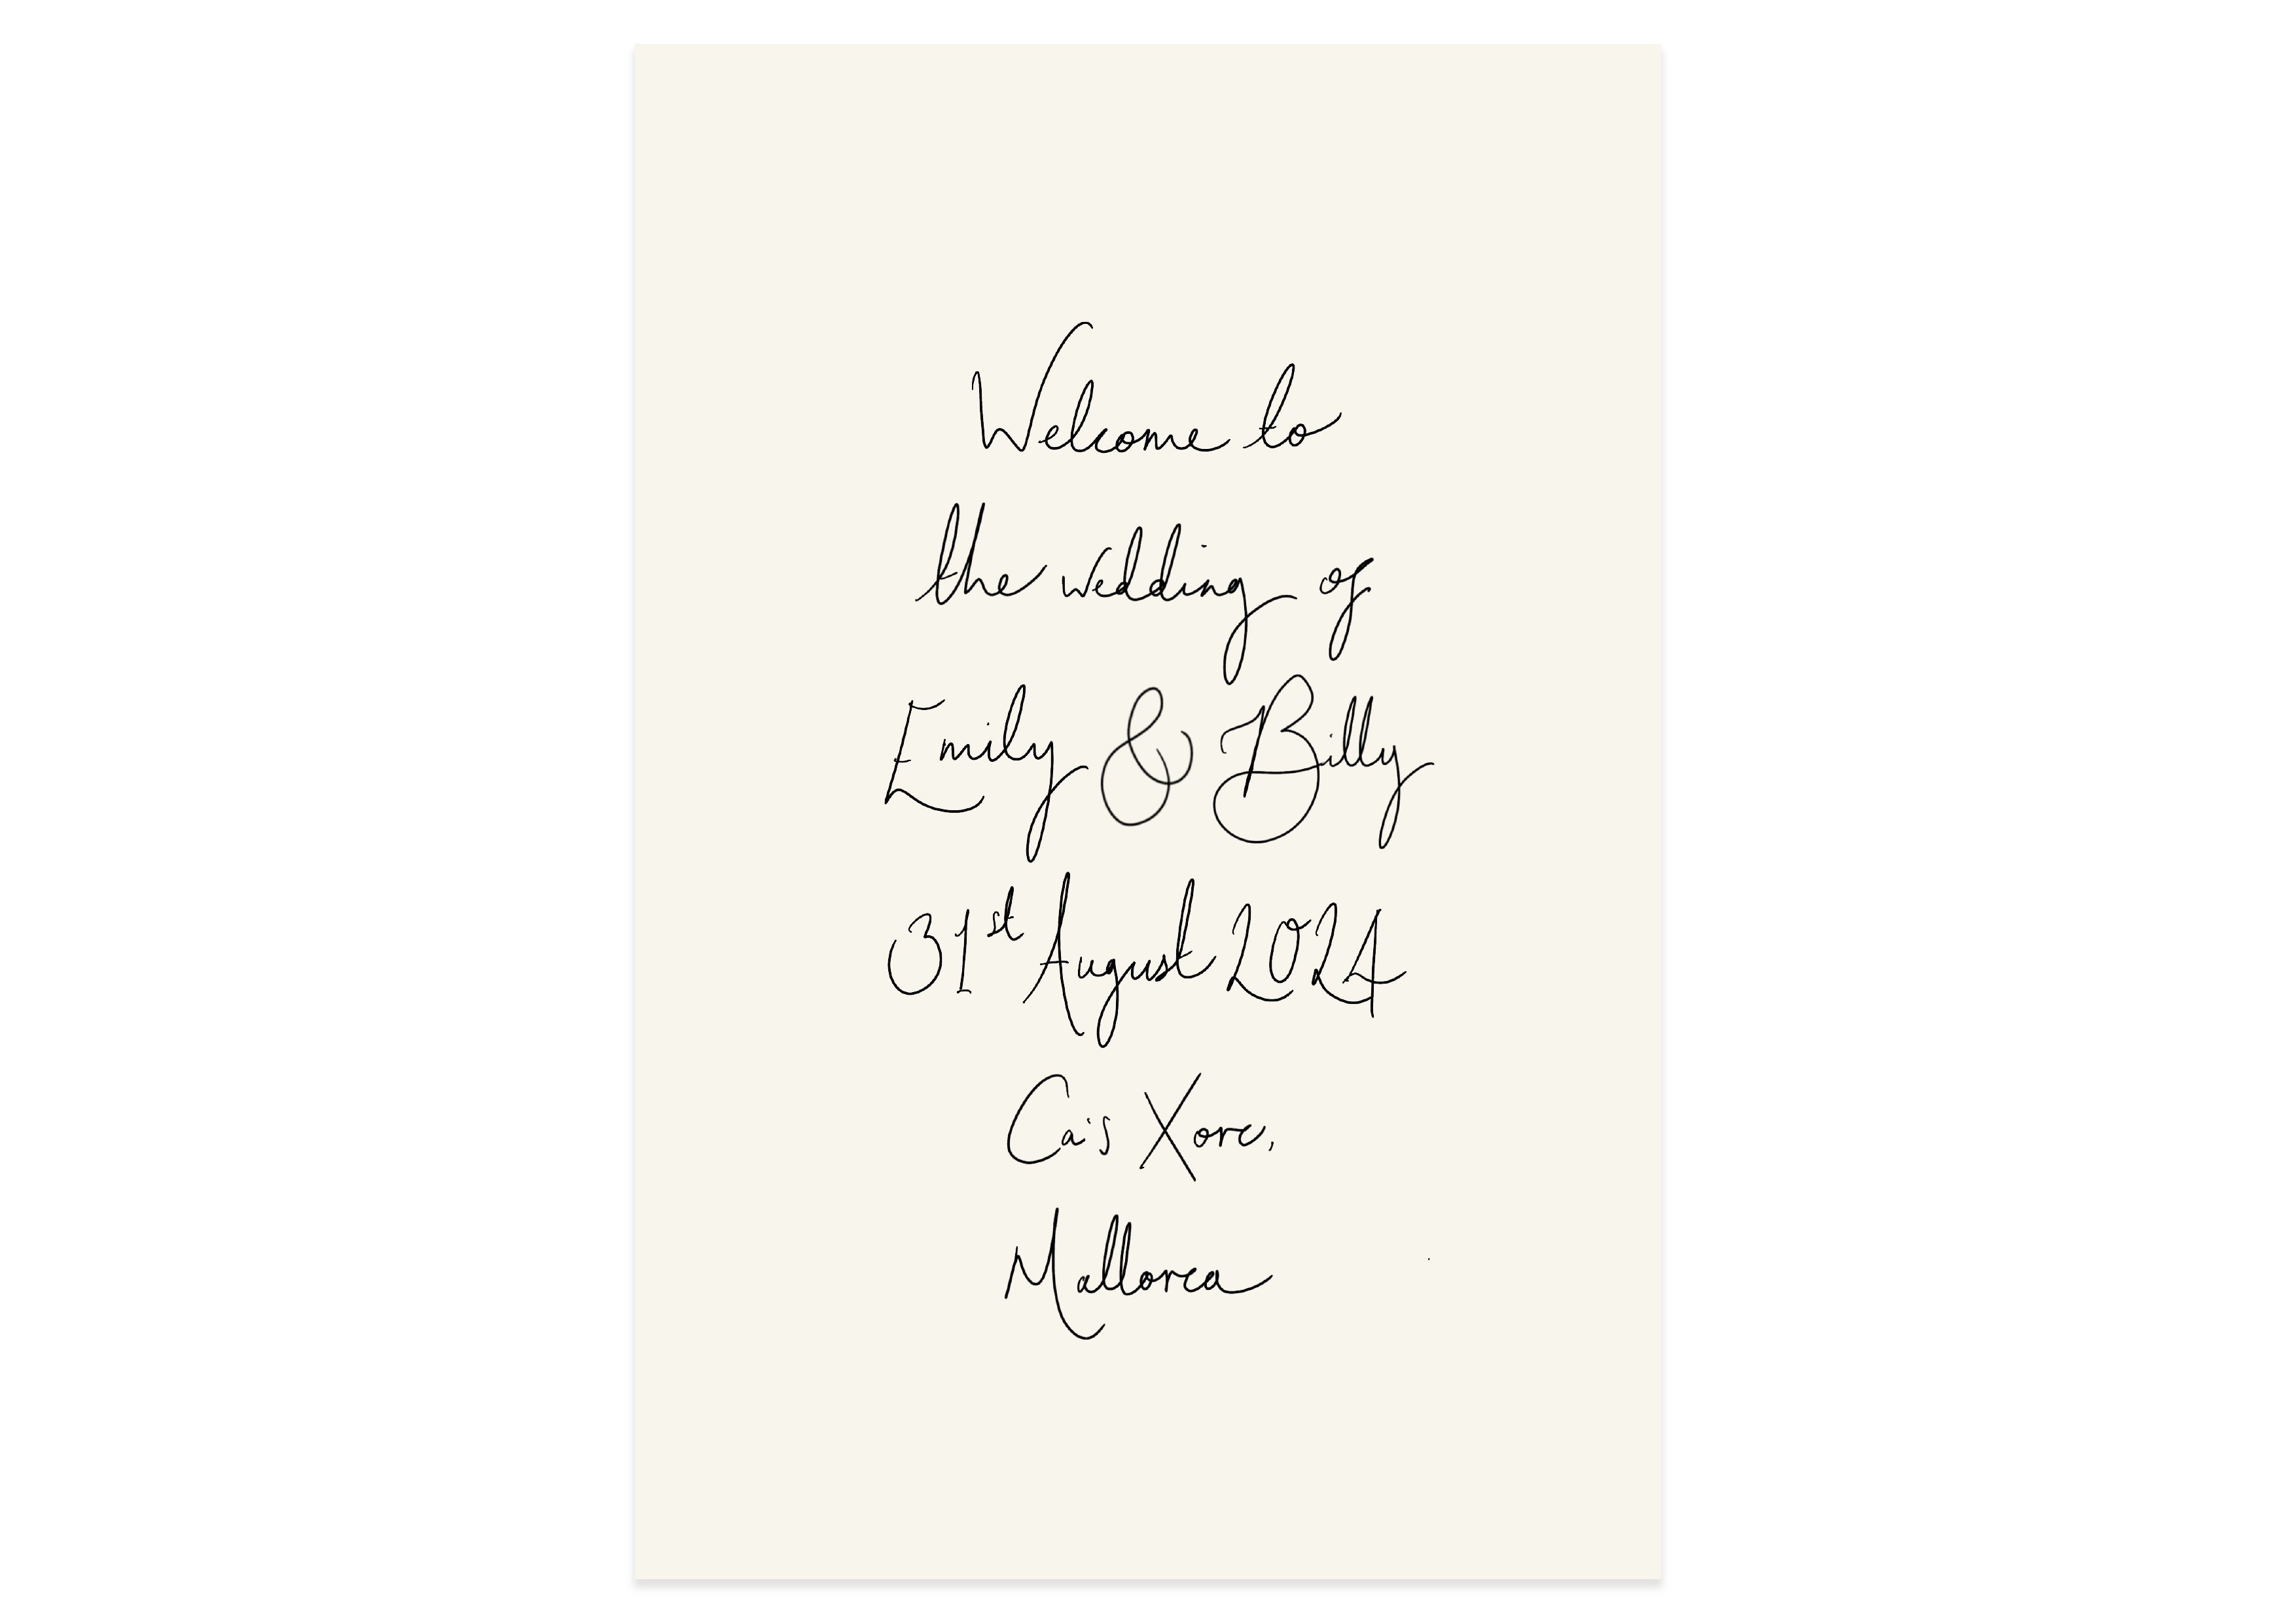 Welcome to
the wedding of
Emily & Billy
31st August 2024
Ca's Xorc,
Mallorca